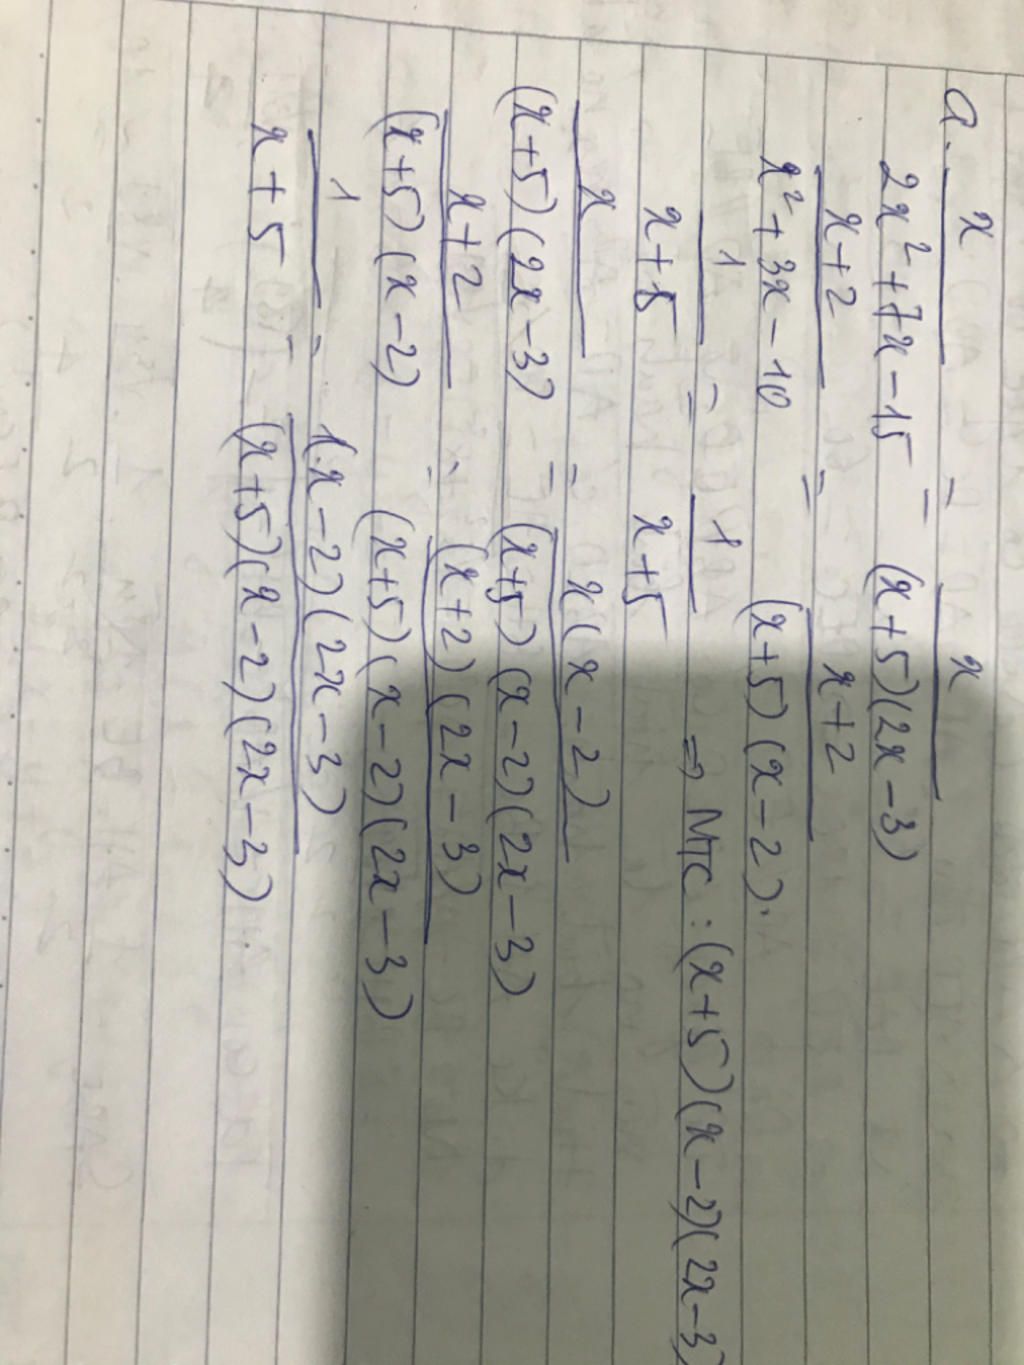 a. x/(2x²+7x-15) = x/((x+5)(2x-3))
(x+2)/(x²+3x-10) = (x+2)/((x+5)(x-2)).
1/(x+5) = 1/(x+5) => MTC: (x+5)(x-2)(2x-3)
x/((x+5)(2x-3)) = x(x-2)/((x+5)(x-2)(2x-3))
(x+2)/((x+5)(x-2)) = (x+2)(2x-3)/((x+5)(x-2)(2x-3))
1/(x+5) = 1(x-2)(2x-3)/((x+5)(x-2)(2x-3))